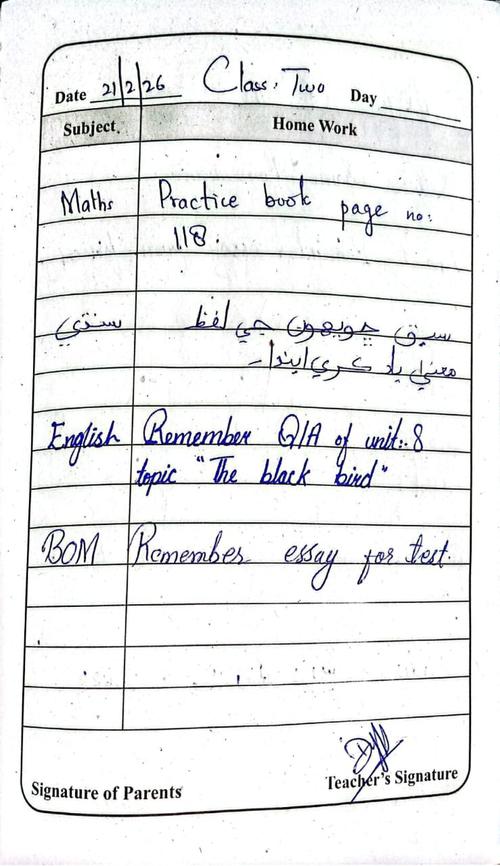 Date 21/2/26 Class: Two Day
Subject. Home Work
Maths Practice book page no:
118.
سنڌي سبق چوويھون جي لفظ
معنيٰ ياد ڪري ايندا۔
English Remember Q/A of unit: 8
topic "The black bird"
BOM Remember essay for test.
Signature of Parents Teacher's Signature